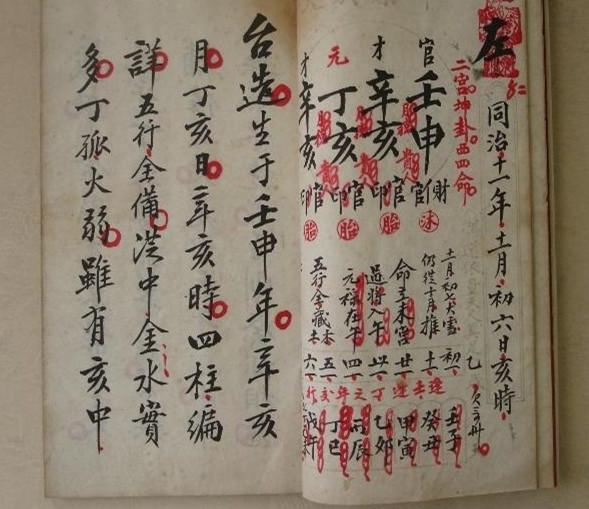 左
仁
同治十一年十一月初六日亥時
二宮坤卦西四命
官 壬申 財 官 印 沐
才 辛亥 官 印 胎
元 丁亥 官 印 胎
才 辛亥 官 印 胎
十一月初七大雪
仍從十月推
命立未宮
過將入午
元祿在午
五行金藏木
初一 壬子
十一 癸丑
廿一 甲寅
卅一 乙卯
四一 丙辰
五一 丁巳
六一 戊午
逢壬逢丁之年交行
台造生于壬申年辛亥
月丁亥日辛亥時四柱編
詳五行全備洪中金水實
多丁孤火弱雖有亥中